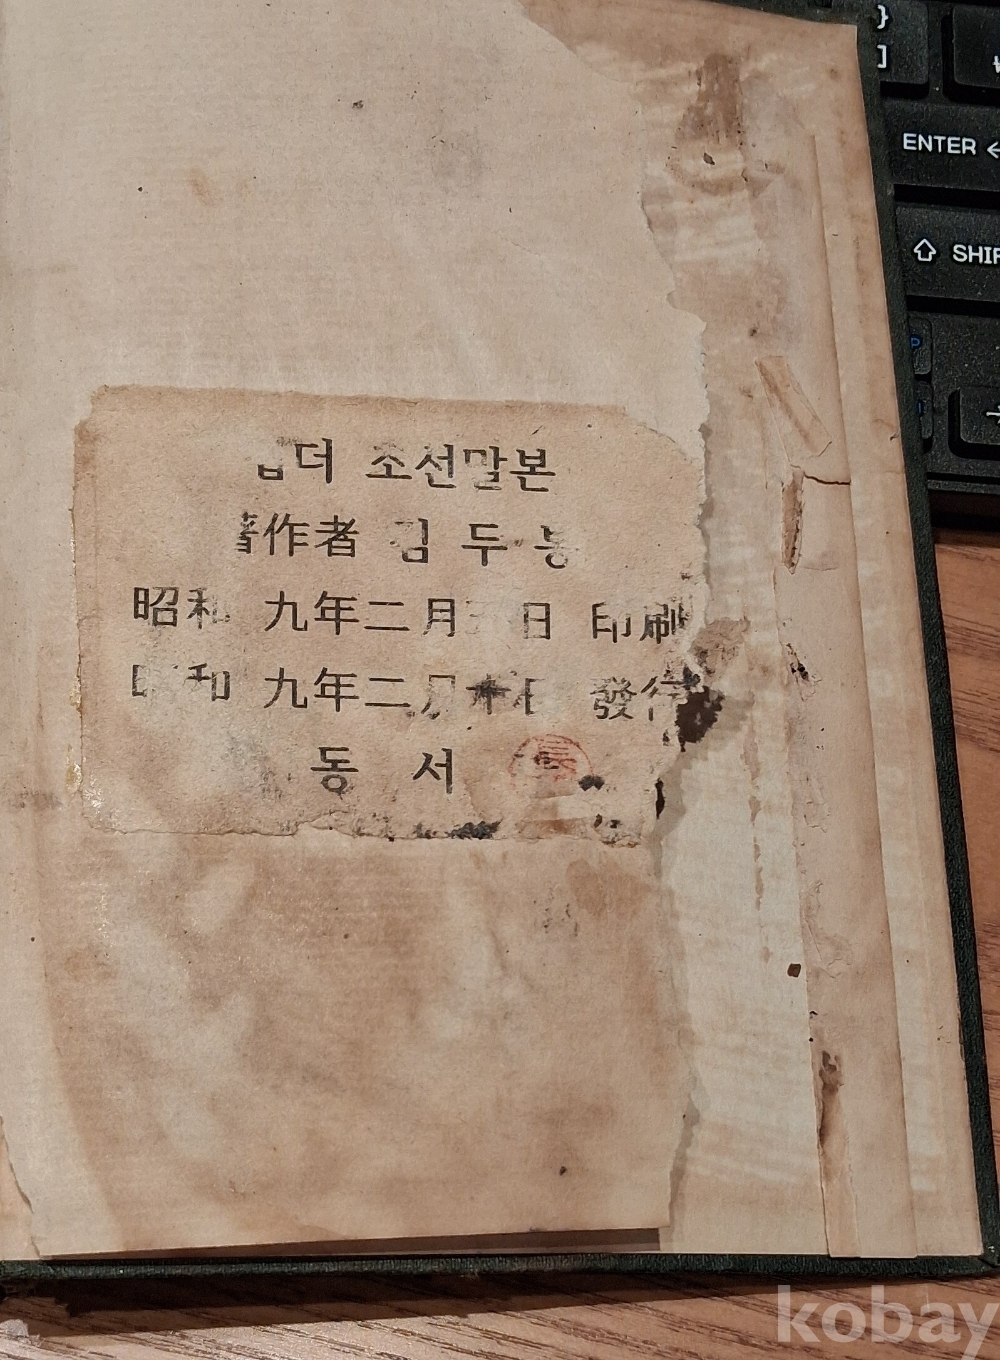 }
]
ENTER
SHIF
더 조선말본
著作者 김 두 봉
昭和 九年二月 日 印刷
昭和 九年二月 日 發行
동 서
kobay